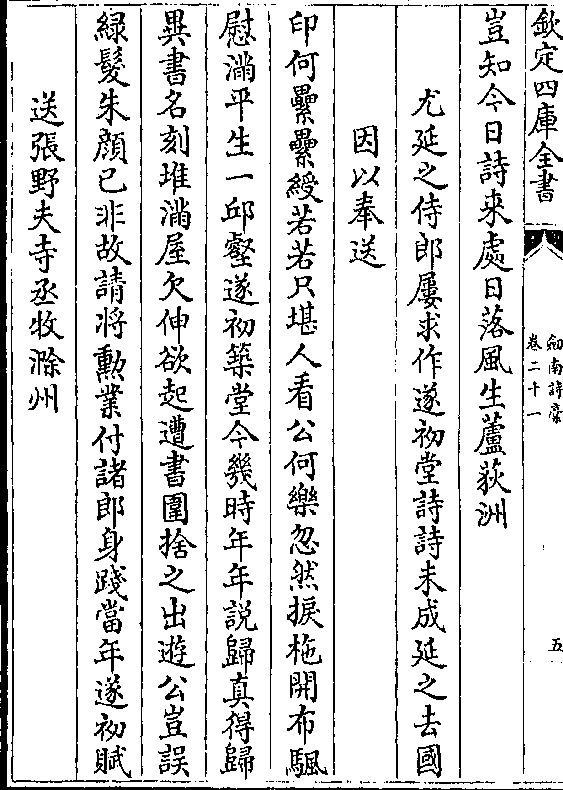 欽定四庫全書
劒南詩藁
卷二十一
五
豈知今日詩来處日落風生蘆荻洲
尤延之侍郎屢求作遂初堂詩詩未成延之去國
因以奉送
印何纍纍綬若若只堪人看公何樂忽然捩柂開布颿
慰滿平生一邱壑遂初築堂今幾時年年説歸真得歸
異書名刻堆滿屋欠伸欲起遭書圍捨之出遊公豈誤
緑髮朱顔已非故請將勲業付諸郎身踐當年遂初賦
送張野夫寺丞牧滁州